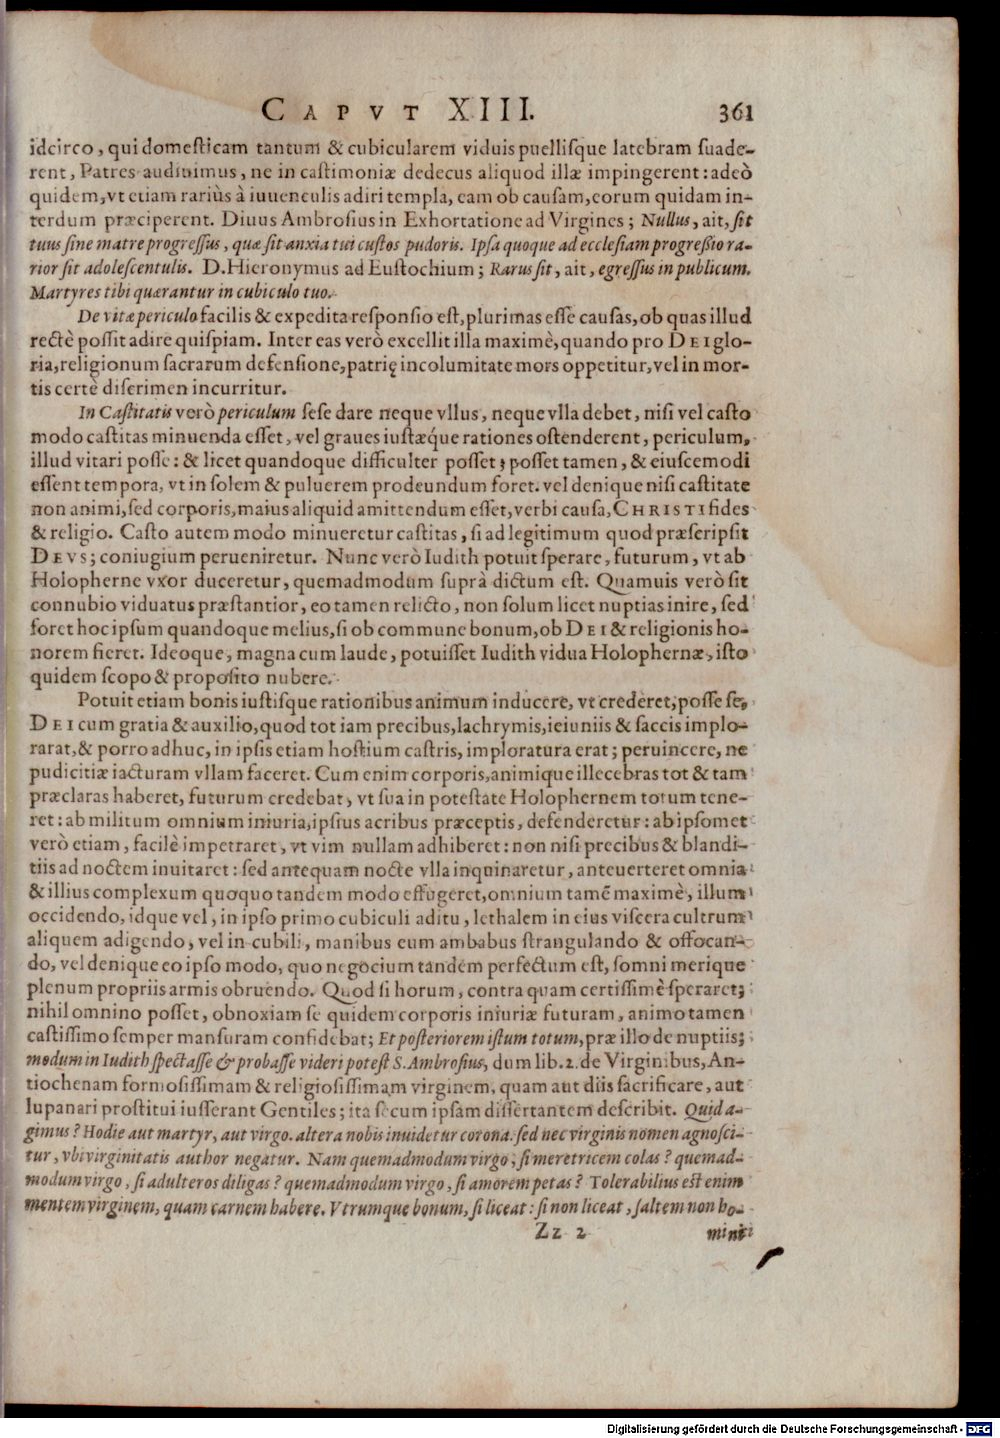 CAPVT XIII. 361
idcirco, qui domesticam tantum & cubicularem viduis puellisque latebram suade-
rent, Patres audiuimus, ne in castimoniæ dedecus aliquod illæ impingerent: adeò
quidem, vt etiam rariùs à iuuenculis adiri templa, eam ob causam, eorum quidam in-
terdum præciperent. Diuus Ambrosius in Exhortatione ad Virgines; Nullus, ait, sit
tuus sine matre progressus, quæ sit anxia tui custos pudoris. Ipsa quoque ad ecclesiam progreßio ra-
rior sit adolescentulis. D. Hieronymus ad Eustochium; Rarus sit, ait, egressus in publicum.
Martyres tibi quærantur in cubiculo tuo.
De vitæ periculo facilis & expedita responsio est, plurimas esse causas, ob quas illud
rectè possit adire quispiam. Inter eas verò excellit illa maximè, quando pro DEI glo-
ria, religionum sacrarum defensione, patrię incolumitate mors oppetitur, vel in mor-
tis certè discrimen incurritur.
In Castitatis verò periculum sese dare neque vllus, neque vlla debet, nisi vel casto
modo castitas minuenda esset, vel graues iustæq́ue rationes ostenderent, periculum,
illud vitari posse: & licet quandoque difficulter posset; posset tamen, & eiuscemodi
essent tempora, vt in solem & puluerem prodeundum foret. vel denique nisi castitate
non animi, sed corporis, maius aliquid amittendum esset, verbi causa, CHRISTI fides
& religio. Casto autem modo minueretur castitas, si ad legitimum quod præscripsit
DEVS; coniugium perueniretur. Nunc verò Iudith potuit sperare, futurum, vt ab
Holopherne vxor duceretur, quemadmodum suprà dictum est. Quamuis verò sit
connubio viduatus præstantior, eo tamen relicto, non solum licet nuptias inire, sed
foret hoc ipsum quandoque melius, si ob commune bonum, ob DEI & religionis ho-
norem fieret. Ideoque, magna cum laude, potuisset Iudith vidua Holophernæ, isto
quidem scopo & proposito nubere.
Potuit etiam bonis iustisque rationibus animum inducere, vt crederet, posse se,
DEI cum gratia & auxilio, quod tot iam precibus, lachrymis, ieiuniis & saccis implo-
rarat, & porro adhuc, in ipsis etiam hostium castris, imploratura erat; peruincere, ne
pudicitiæ iacturam vllam faceret. Cum enim corporis, animique illecebras tot & tam
præclaras haberet, futurum credebat, vt sua in potestate Holophernem totum tene-
ret: ab militum omnium iniuria, ipsius acribus præceptis, defenderetur: ab ipsomet
verò etiam, facilè impetraret, vt vim nullam adhiberet: non nisi precibus & blandi-
tiis ad noctem inuitaret: sed antequam nocte vlla inquinaretur, anteuerteret omnia
& illius complexum quoquo tandem modo effugeret, omnium tamẽ maximè, illum
occidendo, idque vel, in ipso primo cubiculi aditu, lethalem in eius viscera cultrum
aliquem adigendo, vel in cubili, manibus eum ambabus strangulando & offocan-
do, vel denique eo ipso modo, quo negocium tandem perfectum est, somni merique
plenum propriis armis obruendo. Quod si horum, contra quam certissimè speraret;
nihil omnino posset, obnoxiam se quidem corporis iniuriæ futuram, animo tamen
castissimo semper mansuram confidebat; Et posteriorem istum totum, præ illo de nuptiis;
modum in Iudith spectasse & probasse videri potest S. Ambrosius, dum lib. 2. de Virginibus, An-
tiochenam formosissimam & religiosissimam virginem, quam aut diis sacrificare, aut
lupanari prostitui iusserant Gentiles; ita secum ipsam dissertantem describit. Quid a-
gimus? Hodie aut martyr, aut virgo. altera nobis inuidetur corona. sed nec virginis nomen agnosci-
tur, vbi virginitatis author negatur. Nam quemadmodum virgo, si meretricem colas? quemad-
modum virgo, si adulteros diligas? quemadmodum virgo, si amorem petas? Tolerabilius est enim
mentem virginem, quam carnem habere. Vtrumque bonum, si liceat: si non liceat, saltem non ho-
Zz 2 mini
Digitalisierung gefördert durch die Deutsche Forschungsgemeinschaft - DFG